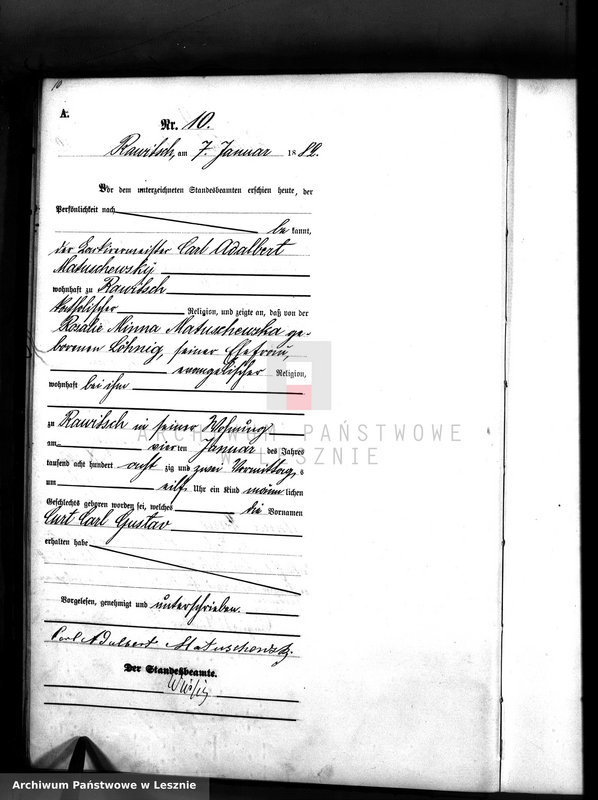 10
A.
Nr. 10.
Rawitsch, am 7. Januar 1882.
Vor dem unterzeichneten Standesbeamten erschien heute, der
Persönlichkeit nach
bekannt,
der Lackirermeister Carl Adalbert
Matuschewsky
wohnhaft zu Rawitsch
katholischer Religion, und zeigte an, daß von der
Rosalie Minna Matuschewska ge-
borenen Löhnig, seiner Ehefrau,
evangelischer Religion,
wohnhaft bei ihm
zu Rawitsch in seiner Wohnung
am vierten Januar des Jahres
tausend acht hundert achtzig und zwei Vormittags
um eilf Uhr ein Kind männlichen
Geschlechts geboren worden sei, welches die Vornamen
Curt Carl Gustav
erhalten habe
Vorgelesen, genehmigt und unterschrieben.
Carl Adalbert Matuschewsky
Der Standesbeamte.
ARCHIWUM PAŃSTWOWE
W LESZNIE
Archiwum Państwowe w Lesznie